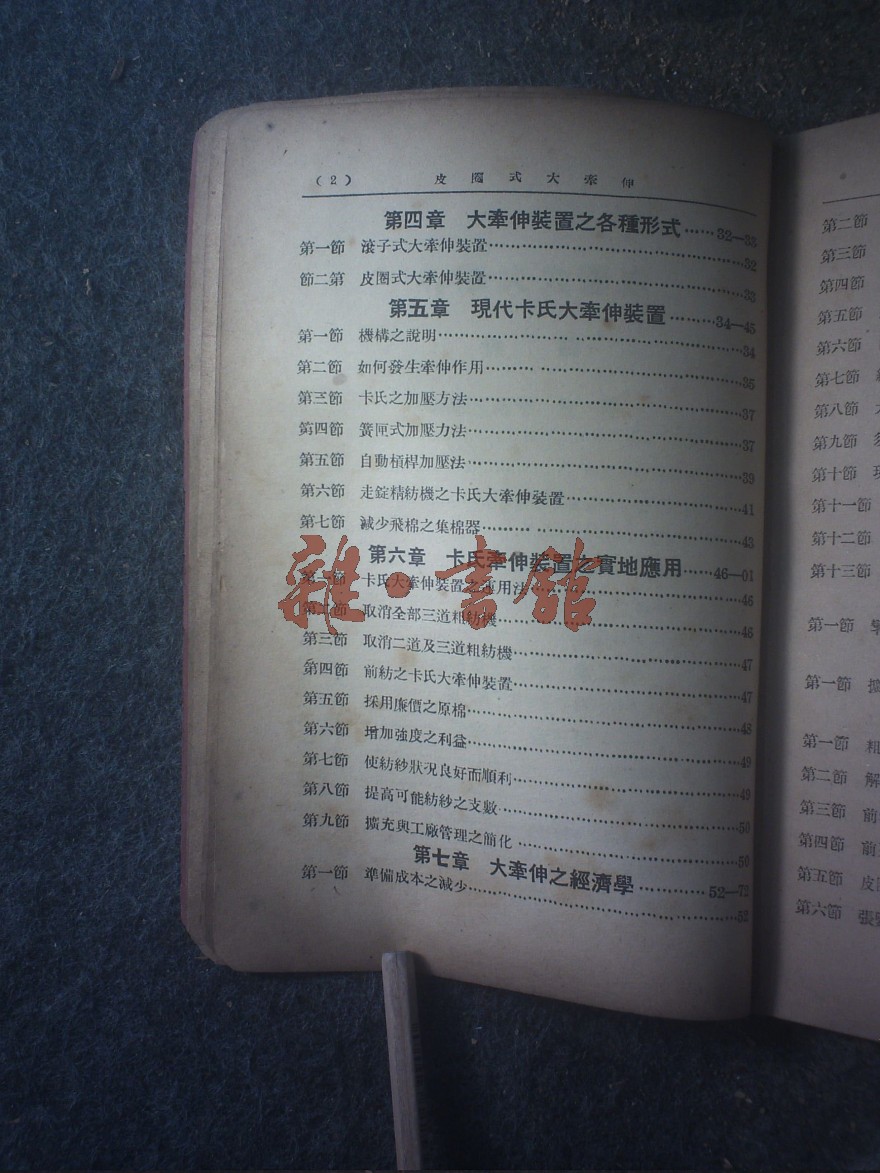 (2) 皮圈式大牽伸
第四章 大牽伸裝置之各種形式……32—33
第一節 滾子式大牽伸裝置……32
節二第 皮圈式大牽伸裝置……33
第五章 現代卡氏大牽伸裝置……34—45
第一節 機構之說明……34
第二節 如何發生牽伸作用……35
第三節 卡氏之加壓方法……37
第四節 簧匣式加壓力法……37
第五節 自動槓桿加壓法……39
第六節 走錠精紡機之卡氏大牽伸裝置……41
第七節 減少飛棉之集棉器……43
第六章 卡氏牽伸裝置之實地應用……46—01
第一節 卡氏大牽伸裝置之運用法……46
第二節 取消全部三道粗紡機……46
第三節 取消二道及三道粗紡機……47
第四節 前紡之卡氏大牽伸裝置……47
第五節 採用廉價之原棉……48
第六節 增加強度之利益……49
第七節 使紡紗狀況良好而順利……49
第八節 提高可能紡紗之支數……50
第九節 擴充與工廠管理之簡化……50
第七章 大牽伸之經濟學……52—72
第一節 準備成本之減少……52
雜·書館
第二節
第三節
第四節
第五節
第六節
第七節
第八節
第九節
第十節
第十一節
第十二節
第十三節
第一節
第一節 擴
第一節 粗
第二節 解
第三節 前
第四節 前
第五節 皮
第六節 張